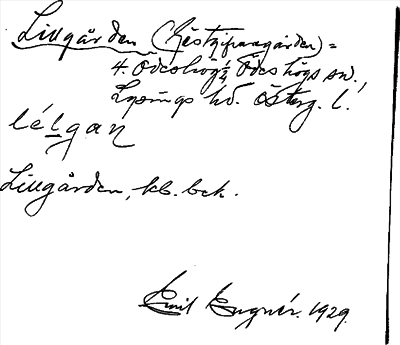 Lillgården (Gästgifvaregården) =
4. Ödeshög 1/4 Ödeshögs sn.,
Lysings hd. Österg. l.
lélgan
Lillgården, kb. bck.
Emil Engnér. 1929.